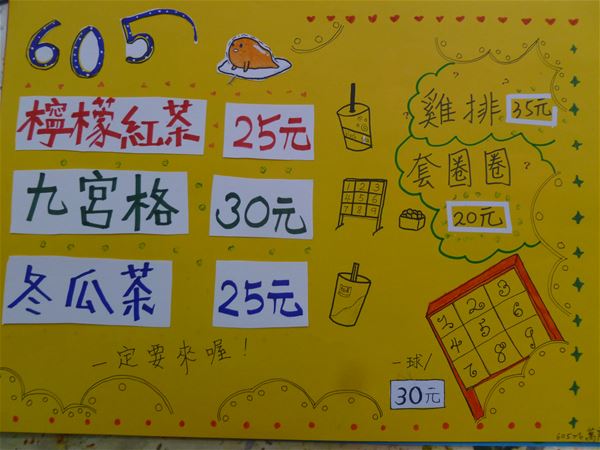 605
檸檬紅茶 25元
九宮格 30元
冬瓜茶 25元
一定要來喔！
雞排 35元
套圈圈
20元
1 2 3
4 5 6
7 8 9
1 2 3
4 5 6
7 8 9
一球/
30元